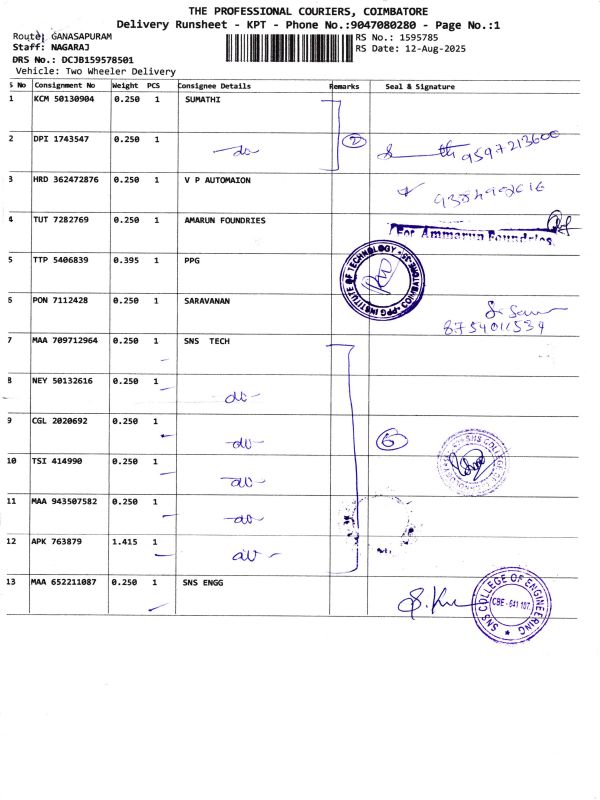 THE PROFESSIONAL COURIERS, COIMBATORE
Delivery Runsheet - KPT - Phone No.:9047080280 - Page No.:1
Route: GANASAPURAM
RS No.: 1595785
Staff: NAGARAJ
RS Date: 12-Aug-2025
DRS No.: DCJB159578501
Vehicle: Two Wheeler Delivery
S No Consignment No Weight PCS Consignee Details Remarks Seal & Signature
1 KCM 50130904 0.250 1 SUMATHI
2 DPI 1743547 0.250 1 -do- 2 9597213600
3 HRD 362472876 0.250 1 V P AUTOMAION
4 TUT 7282769 0.250 1 AMARUN FOUNDRIES
For Ammarun Foundries.
5 TTP 5406839 0.395 1 PPG
PPG INSTITUTE OF TECHNOLOGY COIMBATORE-35
6 PON 7112428 0.250 1 SARAVANAN
8754011534
7 MAA 709712964 0.250 1 SNS TECH
8 NEY 50132616 0.250 1 -do-
9 CGL 2020692 0.250 1 -do- 6
SNS COLLEGE OF
10 TSI 414990 0.250 1 -do-
11 MAA 943507582 0.250 1 -do-
12 APK 763879 1.415 1 -do-
13 MAA 652211087 0.250 1 SNS ENGG
SNS COLLEGE OF ENGINEERING
CBE - 641 107.